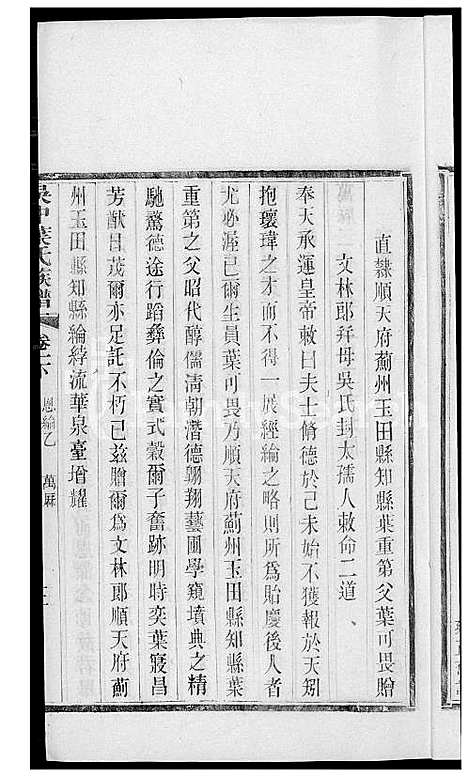 直隸順天府薊州玉田縣知縣葉重第父葉可畏贈
文林郎幷母吳氏封太孺人敕命二道、
奉天承運皇帝敕曰夫士脩德於己未始不獲報於天矧
抱瓌瑋之才而不得一展經綸之略則所爲貽慶後人者
尤必渥已爾生員葉可畏乃順天府薊州玉田縣知縣葉
重第之父昭代醇儒淸朝潛德翺翔藝圃學窺墳典之精
馳騖德途行蹈彝倫之實式穀爾子奮跡明時奕葉寖昌
芳猷日茂爾亦足託不朽已茲贈爾爲文林郎順天府薊
州玉田縣知縣綸綍流華泉臺增耀
吳中葉氏族譜 卷六 恩綸乙 萬厤